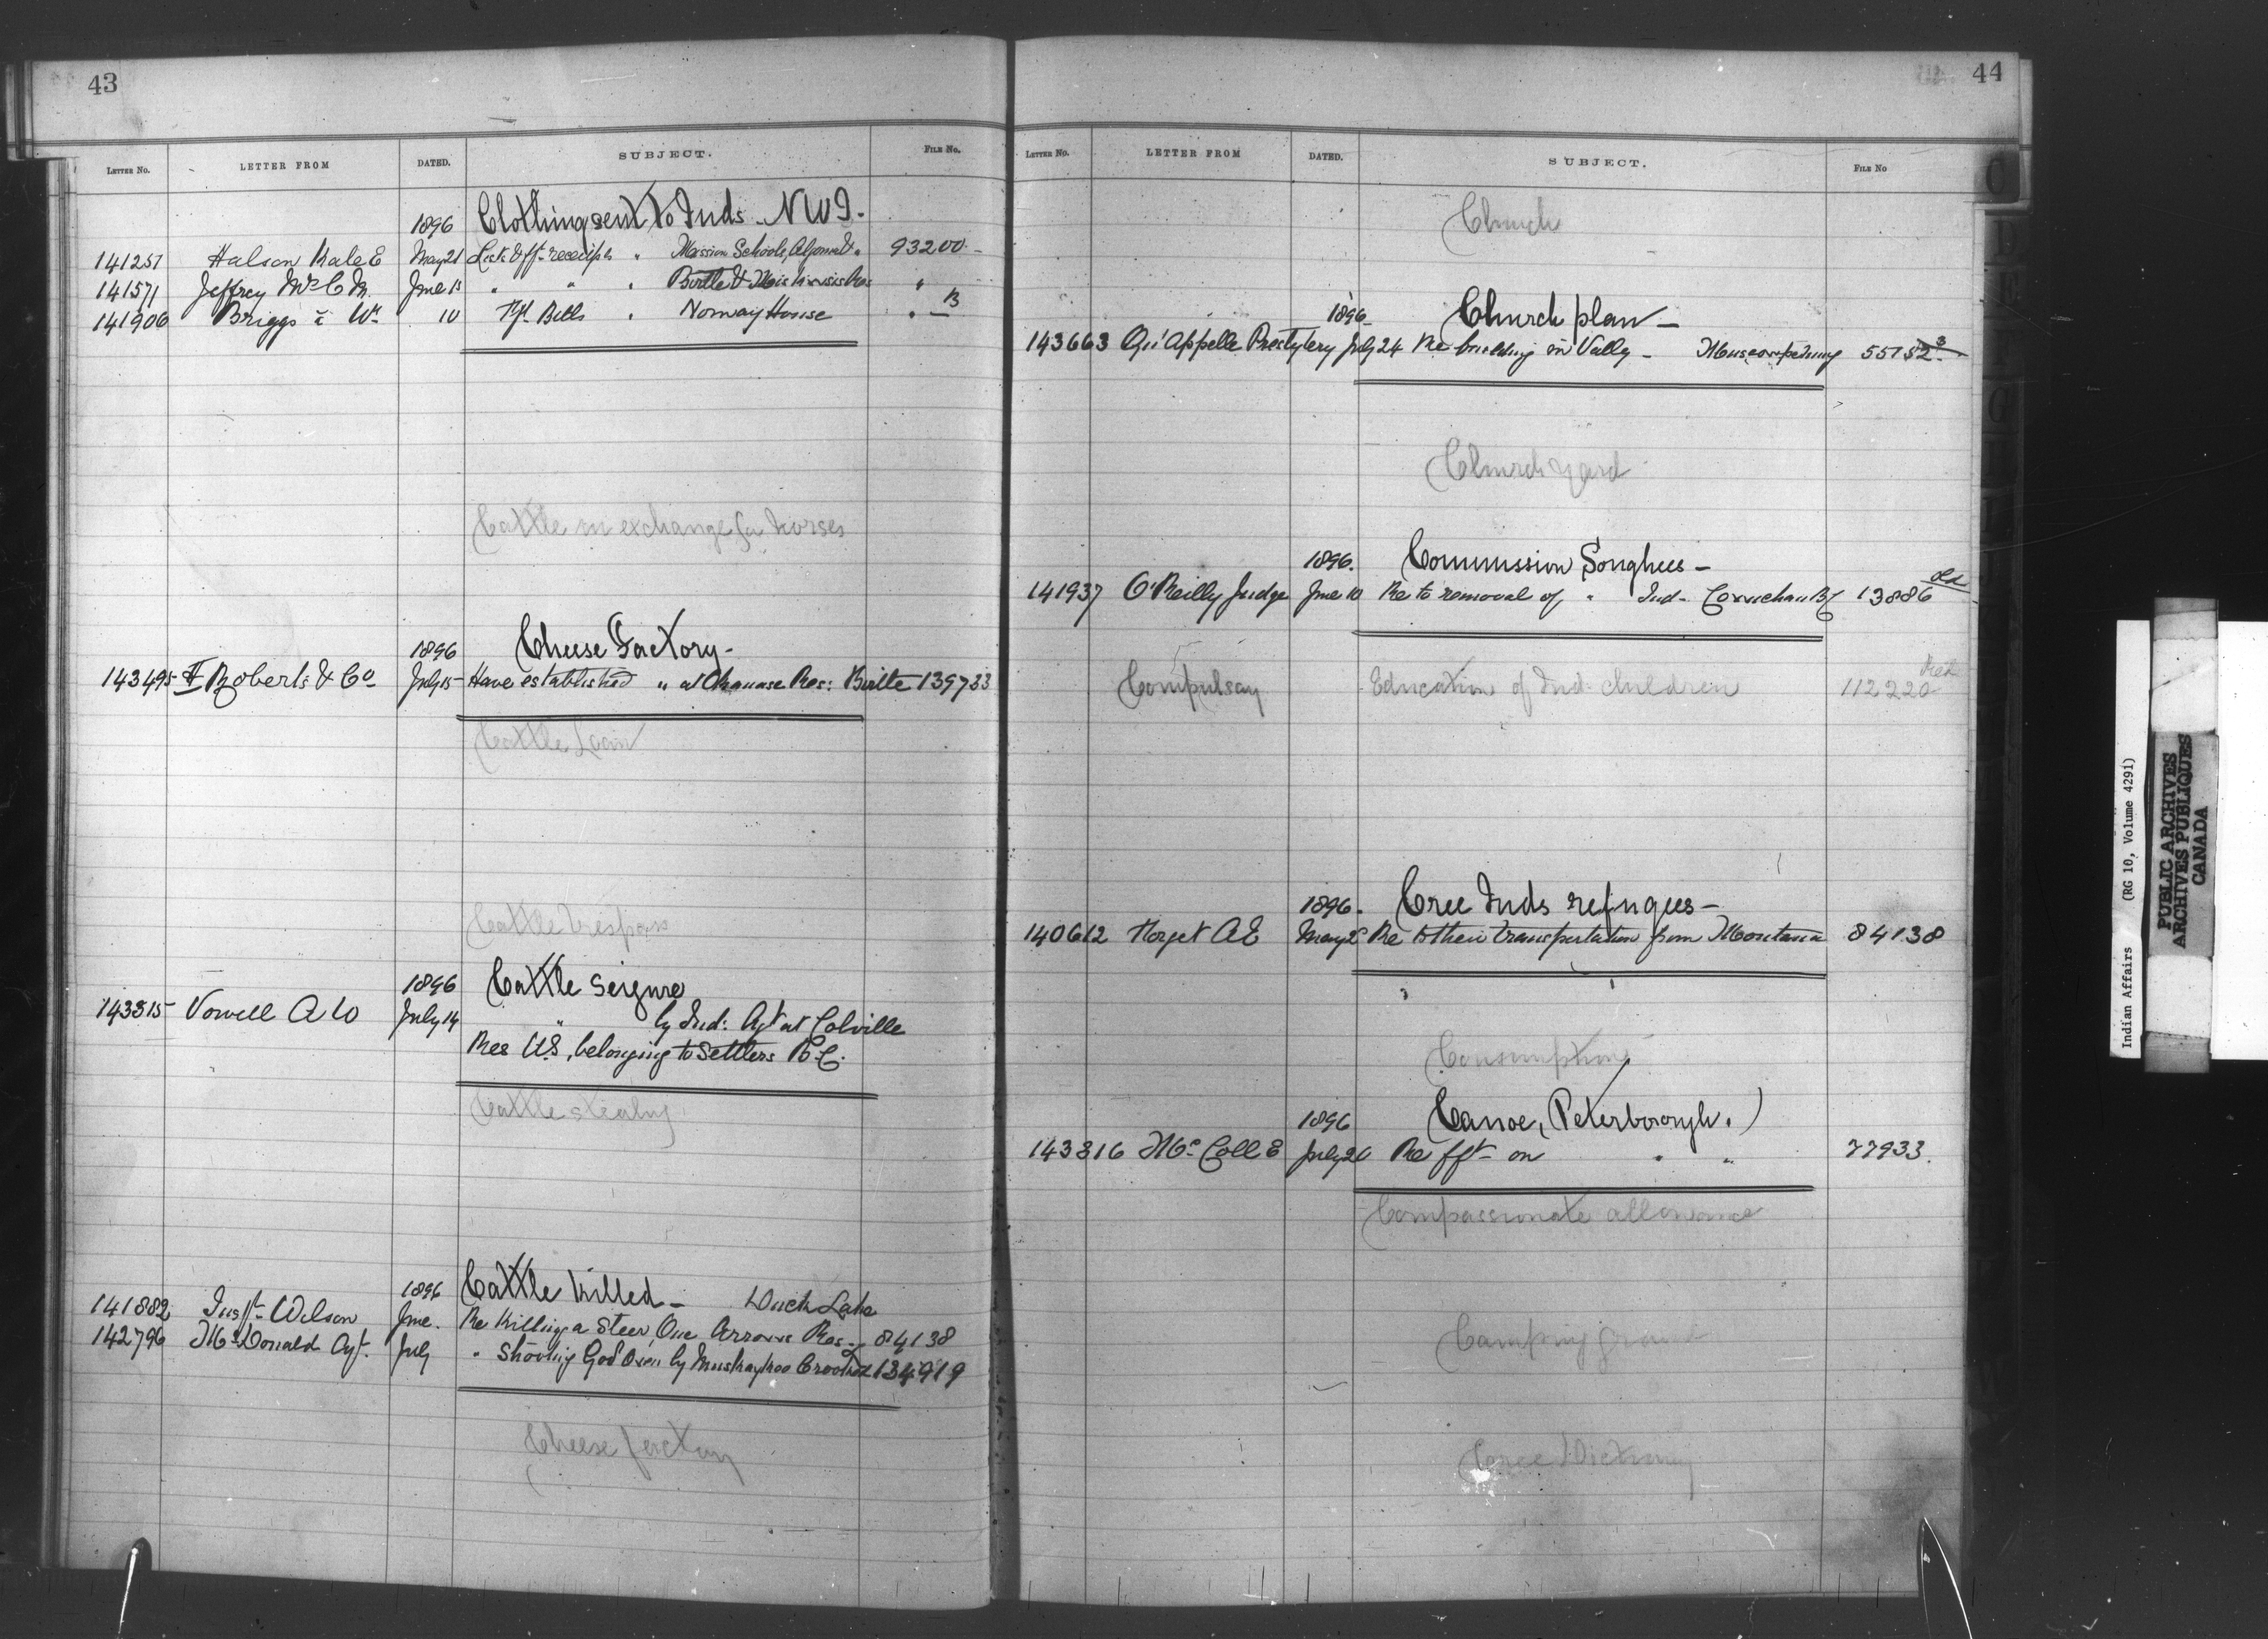 43
LETTER NO. LETTER FROM DATED. SUBJECT. FILE NO.
1896 Clothing sent to Inds - NW T.
141251 Halson Kate E May 21 Lists & frt. receipts " Mission Schools, " 93200 -
141571 Jeffrey Mrs C M. June 15 " " " Birtle & Res "
141906 Briggs Wm 10 Frt. Bills " Norway House " — B
Cattle in exchange for horses
1896 Cheese Factory -
143495 Roberts & Co July 15 Have established " at Res: Birtle 139733
Cattle Loan
Cattle trespass
1896 Cattle Seizure
143315 Vowell A W July 14 " by Ind: Agt at Colville
Res U.S, belonging to Settlers B.C.
Cattle stealing
1896 Cattle Killed - Duck Lake
141882 Inspr Wilson June. Re Killing a Steer, One Arrows Res: 84138
142796 McDonald Agt. July " Shooting Govt Oxen by 134919
Cheese factory
44
LETTER NO. LETTER FROM DATED. SUBJECT. FILE NO
Church
1896 Church plan -
143663 Qu'Appelle Presbytery July 24 Re building in Vally - Muscowpetung 55152 3
Church yard
1896. Commission Songhees -
141937 O'Reilly Judge June 10 Re to removal of " Ind - Cowichan 13886
Compulsay Education of Ind. children 112220 Red
1896. Cree Inds refugees -
140612 Forget A E May Re to their transportation from Montana 84138
Consumption
1896 Canoe, (Peterborough.)
143816 McColl E July 20 Re frt - on " " 77933.
Compassionate allowance
Camping ground
Cree Dictionary
Indian Affairs (RG 10, Volume 4291)
PUBLIC ARCHIVES
ARCHIVES PUBLIQUES
CANADA